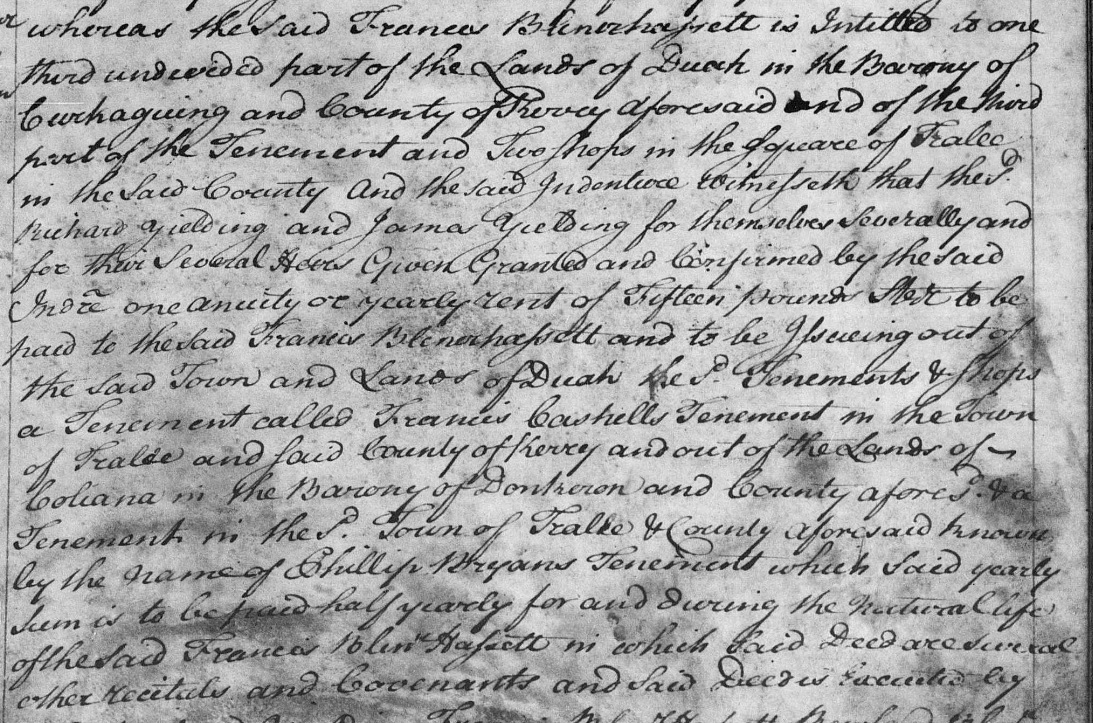 whereas the said Frances Blenerhassett is Intitled to one
third undevided part of the Lands of Duah in the Barony of
Curhaguing and County of Kerry aforesaid and of the third
part of the Tenement and Two Shops in the Square of Tralee
in the said County And the said Indenture witnesseth that the Sd.
Richard Yielding and James Yielding for themselves severally and
for their Several Heirs Given Granted and Confirmed by the said
Indre one anuity or yearly rent of Fifteen pounds Ster to be
paid to the said Francis Blenerhassett and to be Issueing out of
the said Town and Lands of Duah the Sd. Tenements & Shops
a Tenement called Francis Cashells Tenement in the Town
of Tralee and said County of Kerry and out of the Lands of
Coliana in the Barony of Donkeron and County afores.d & a
Tenement in the Sd. Town of Tralee & County aforesaid known
by the name of Phillip Bryans Tenement which said yearly
sum is to be paid half yearly for and during the Natural life
of the said Francis Blen Hassett in which said Deed are several
other recitals and Covenants and said Deed is Executed by